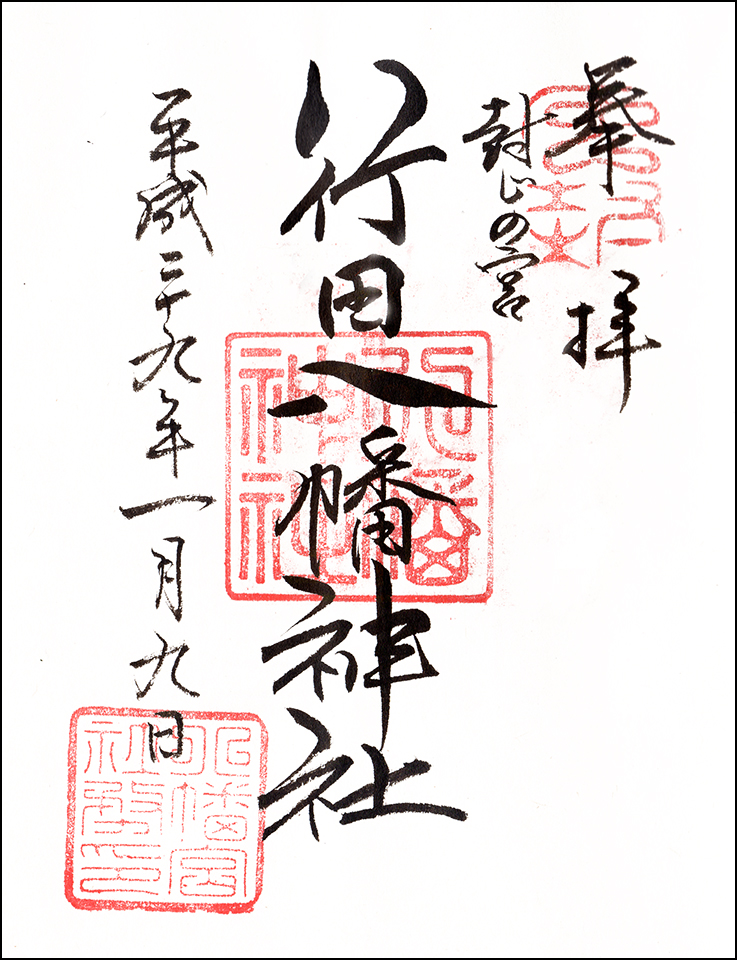 奉拝
封じの宮
行田八幡神社
平成二十九年一月九日
八幡宮
社務印